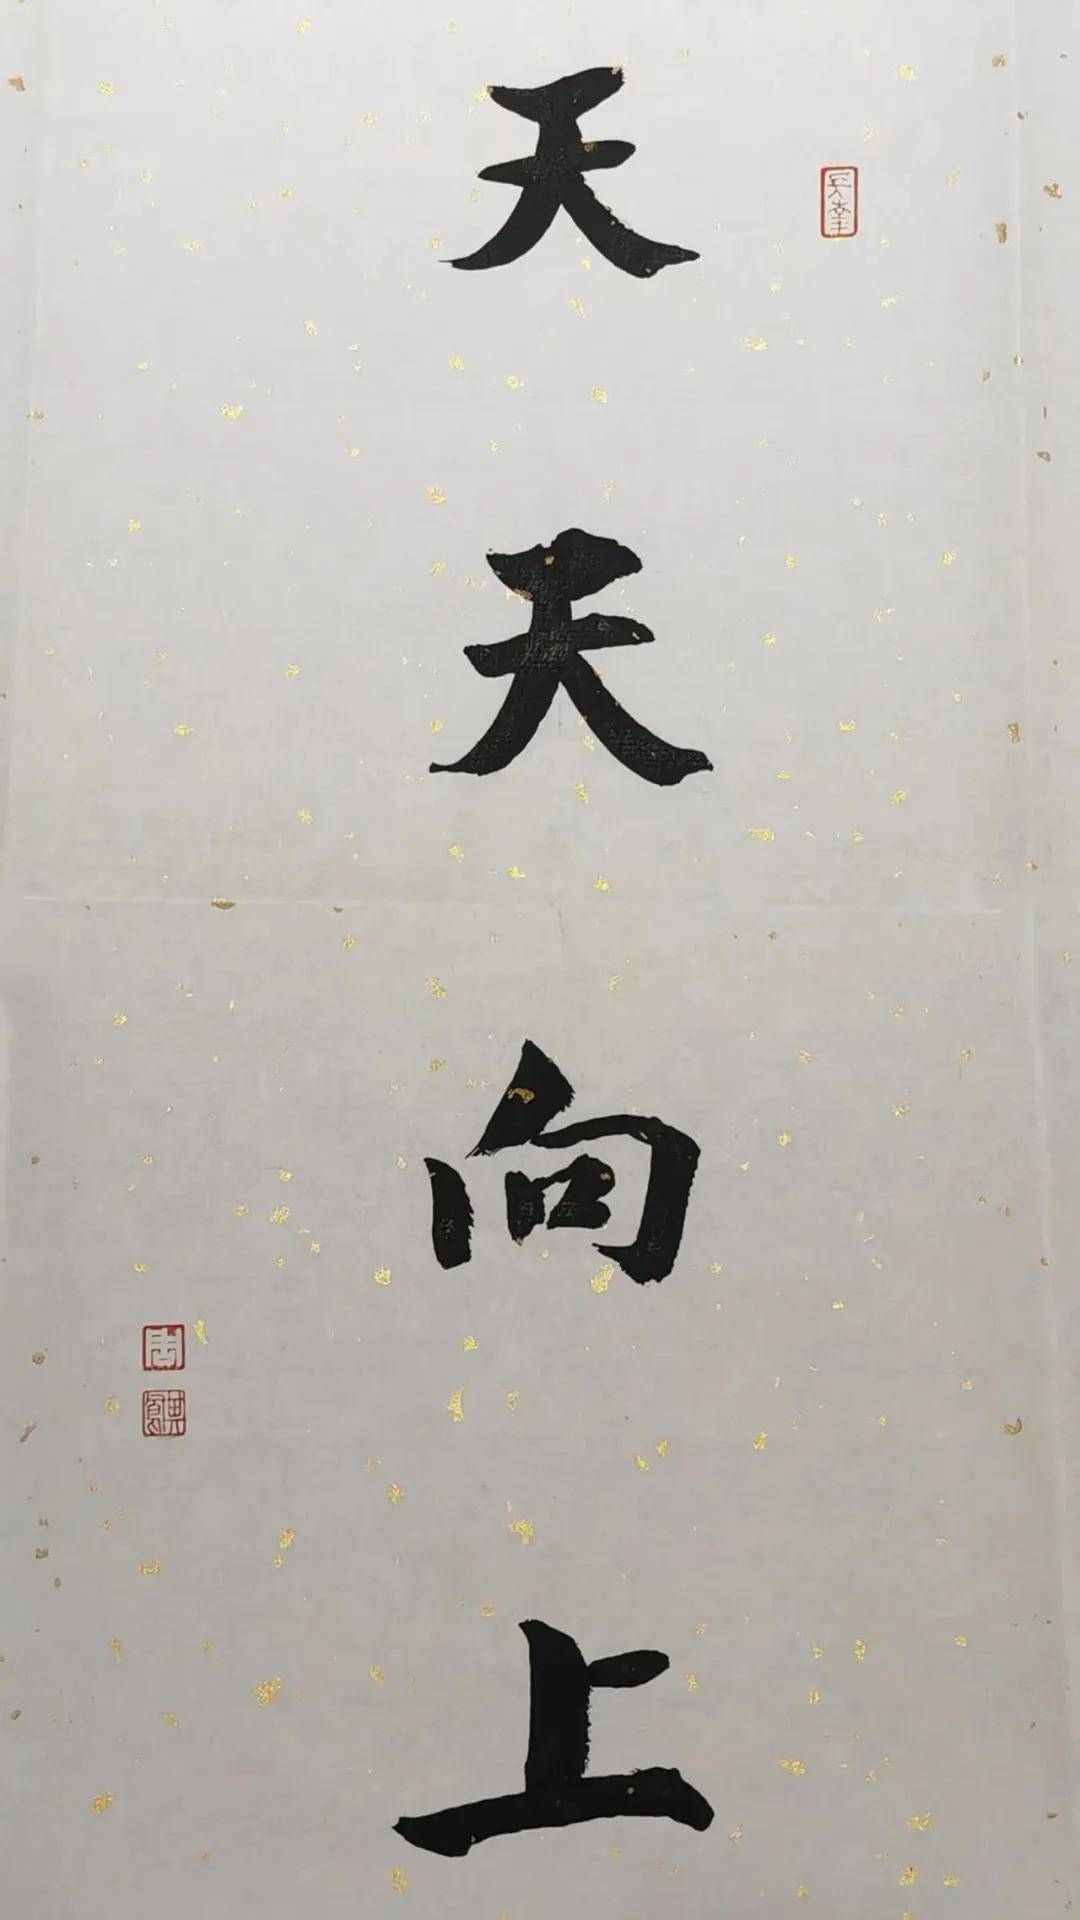 天天向上